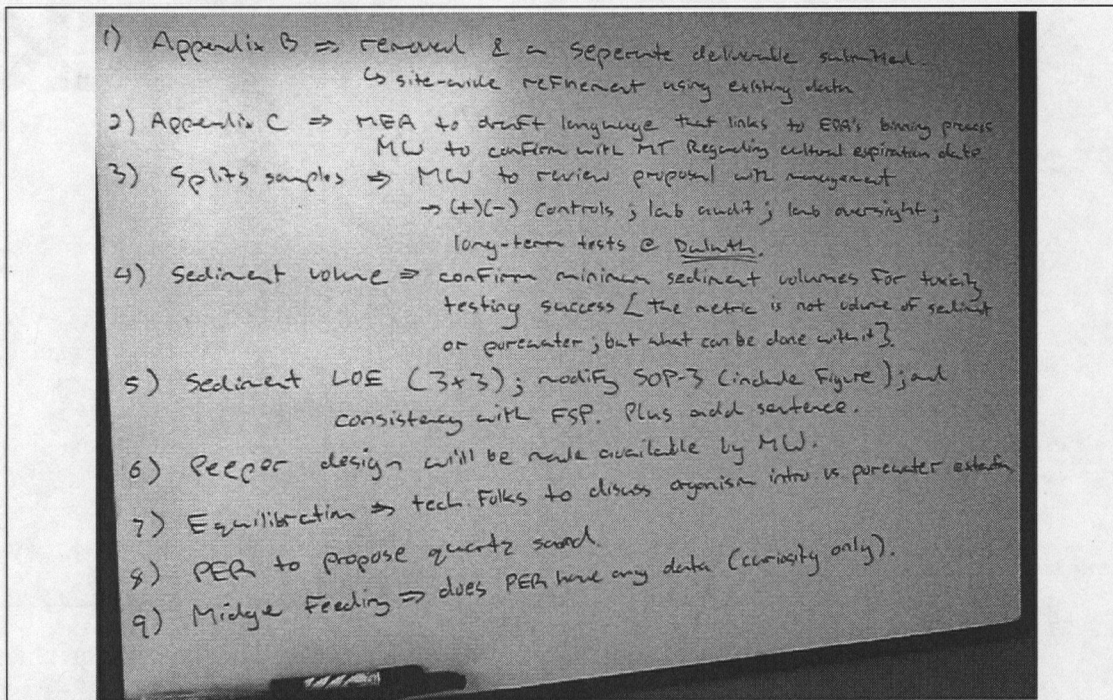 1) Appendix B ⇒ removed & a seperate deliverable submitted.
↳ site-wide refinement using existing data
2) Appendix C ⇒ MEA to draft language that links to EPA's binning process
MW to confirm with MT Regarding cultural expiration date
3) Splits samples ⇒ MW to review proposal with management
→ (+)(-) controls ; lab audit ; lab oversight ;
long-term tests @ Duluth.
4) Sediment volume ⇒ confirm minimum sediment volumes for toxicity
testing success [the metric is not volume of sediment
or porewater ; but what can be done with it].
5) Sediment LOE (3x3) ; modify SOP-3 (include Figure) ; and
consistency with FSP. Plus add sentence.
6) Peeper design will be made available by MW.
7) Equilibration ⇒ tech. Folks to discuss organism intro vs. porewater
8) PER to propose quartz sand.
9) Midge Feeding ⇒ does PER have any data (curiosity only).